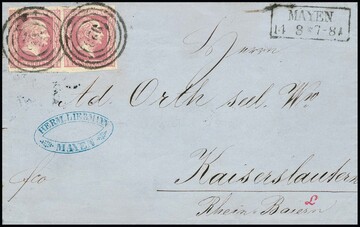 MAYEN
14 8 * 7-8 A
Herrn
Ad. Orth sel. Wwe
HERM. LIEBMANN
MAYEN
Kaiserslautern
fco
Rhein Baiern